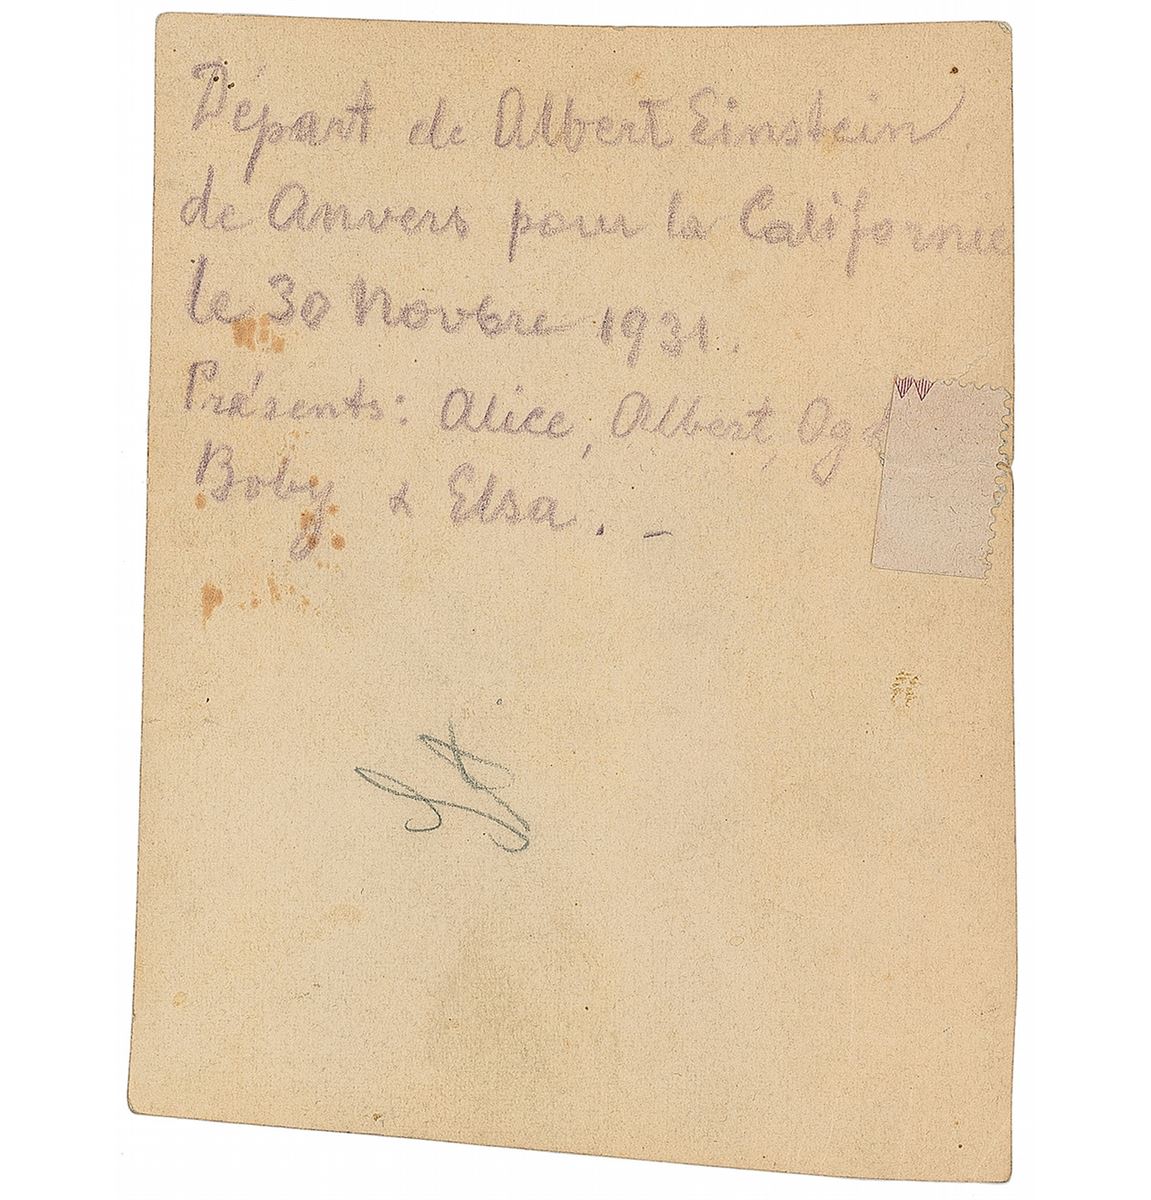 Départ de Albert Einstein
de Anvers pour la Californie
le 30 Novbre 1931.
Présents: Alice, Albert,
Boby & Elsa. . -